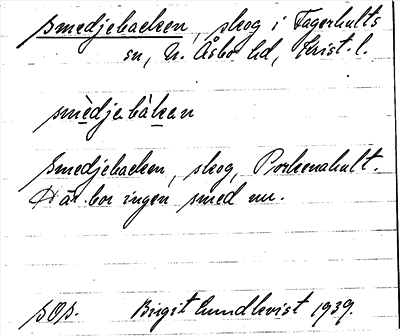 Smedjebacken, skog i Fagerhults
sn, N. Åsbo hd, Krist. l.
smèdjebàkan
Smedjebacken, skog, Porkenahult.
Här bor ingen smed nu.
SOS. Birgit Lundkvist 1939.